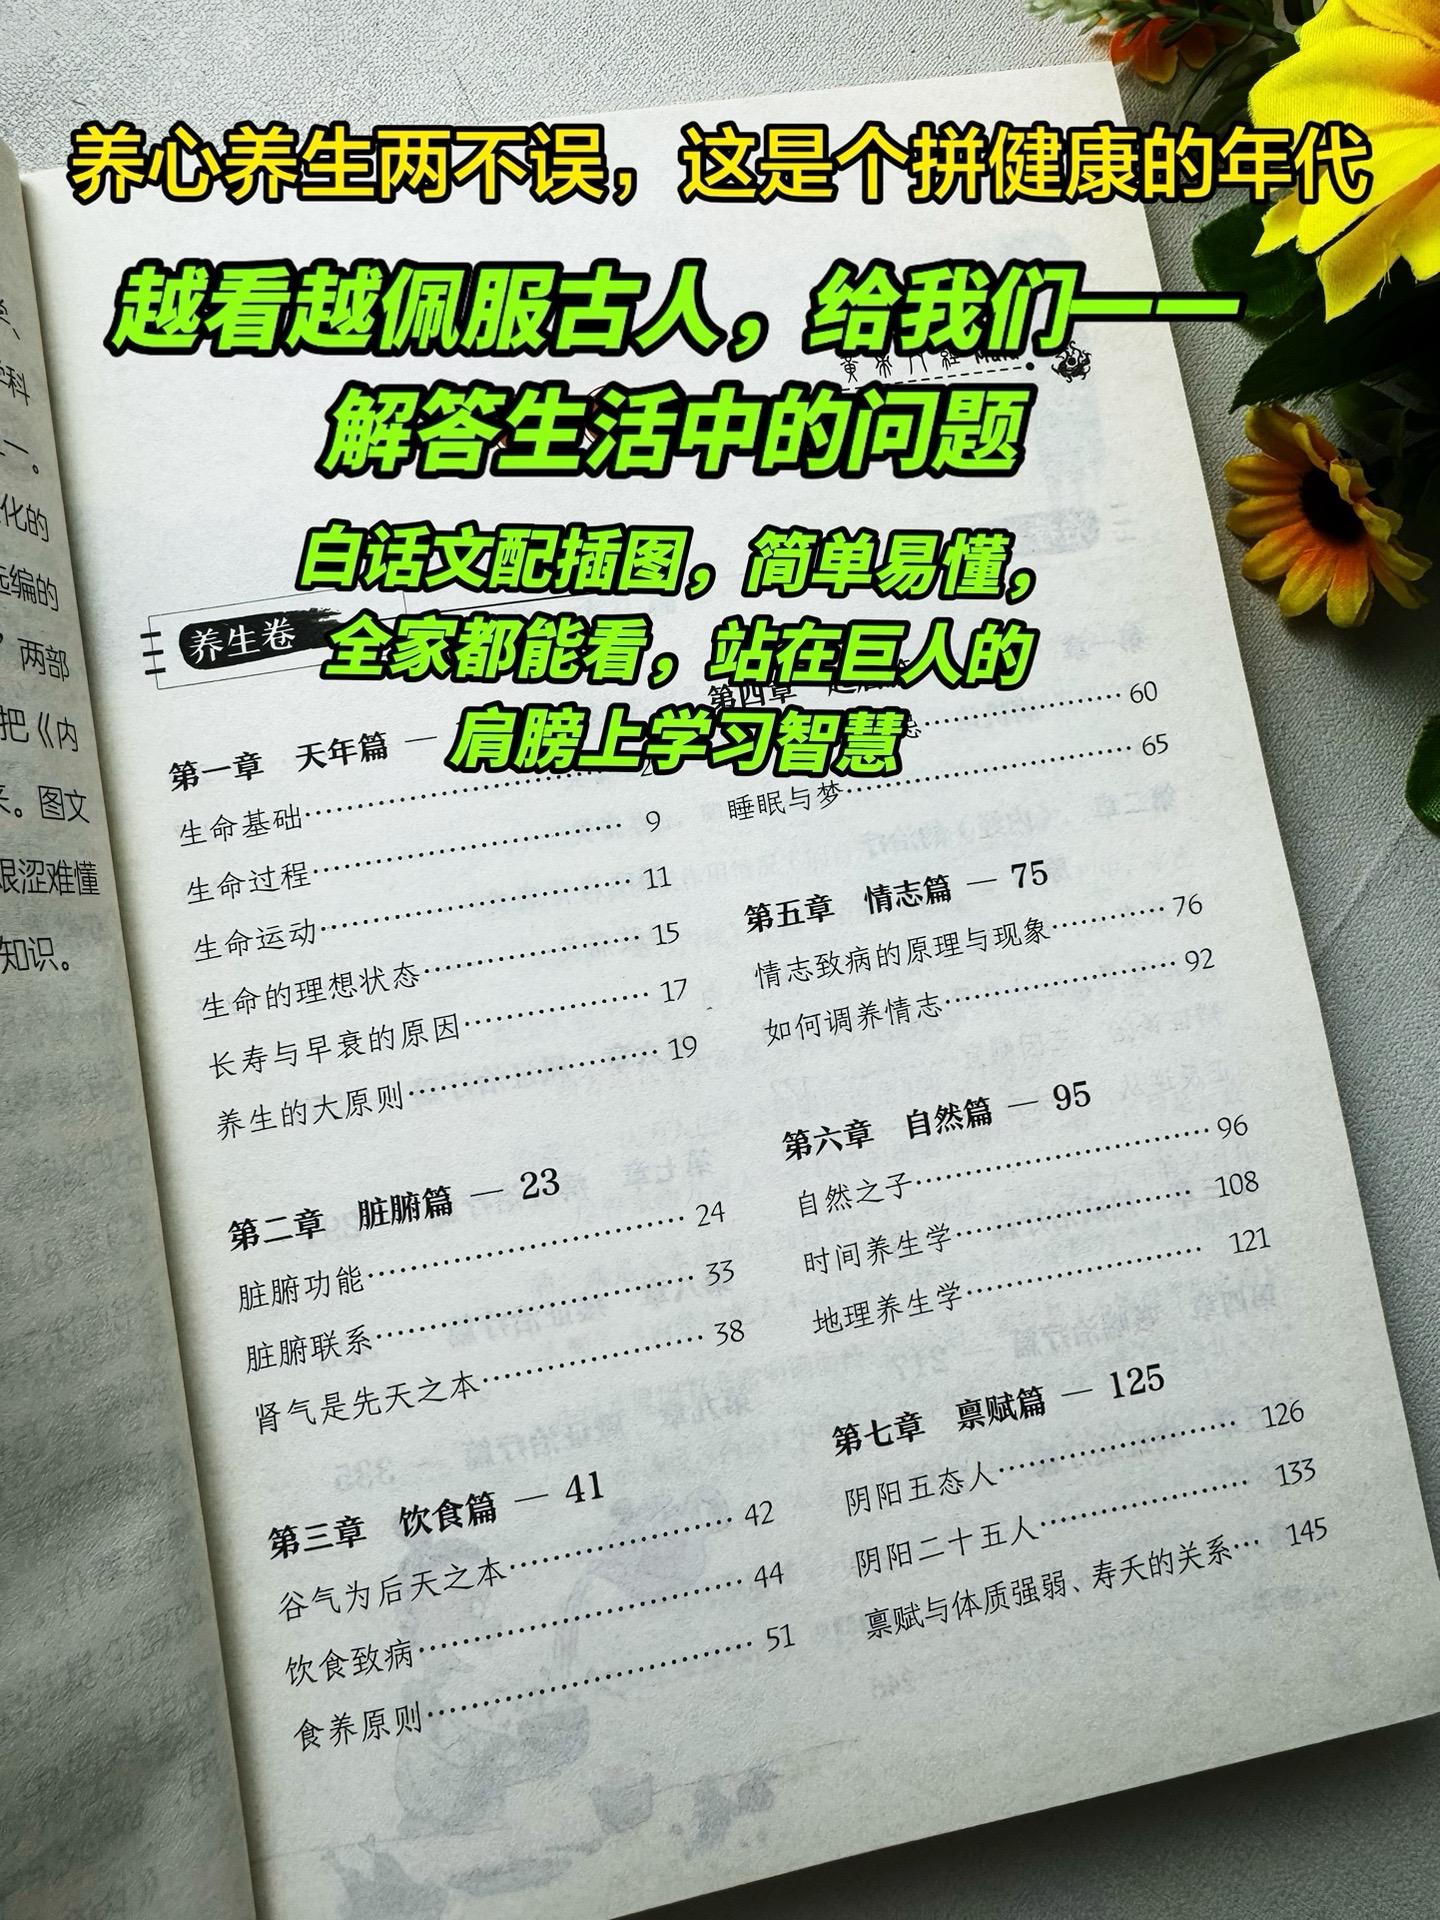 养心养生两不误，这是个拼健康的年代
越看越佩服古人，给我们——
解答生活中的问题
白话文配插图，简单易懂，
全家都能看，站在巨人的
肩膀上学习智慧
科
一。
化的
编的
两部
把《内
来。图文
艰涩难懂
知识。
养生卷
第一章 天年篇 —
生命基础
生命过程 9
生命运动 11
生命的理想状态 15
长寿与早衰的原因 17
养生的大原则 19
第二章 脏腑篇 — 23
脏腑功能 24
脏腑联系 33
肾气是先天之本 38
第三章 饮食篇 — 41
谷气为后天之本 42
饮食致病 44
食养原则 51
第四章
60
睡眠与梦 65
第五章 情志篇 — 75
情志致病的原理与现象 76
如何调养情志 92
第六章 自然篇 — 95
自然之子 96
时间养生学 108
地理养生学 121
第七章 禀赋篇 — 125
阴阳五态人 126
阴阳二十五人 133
禀赋与体质强弱、寿夭的关系 145